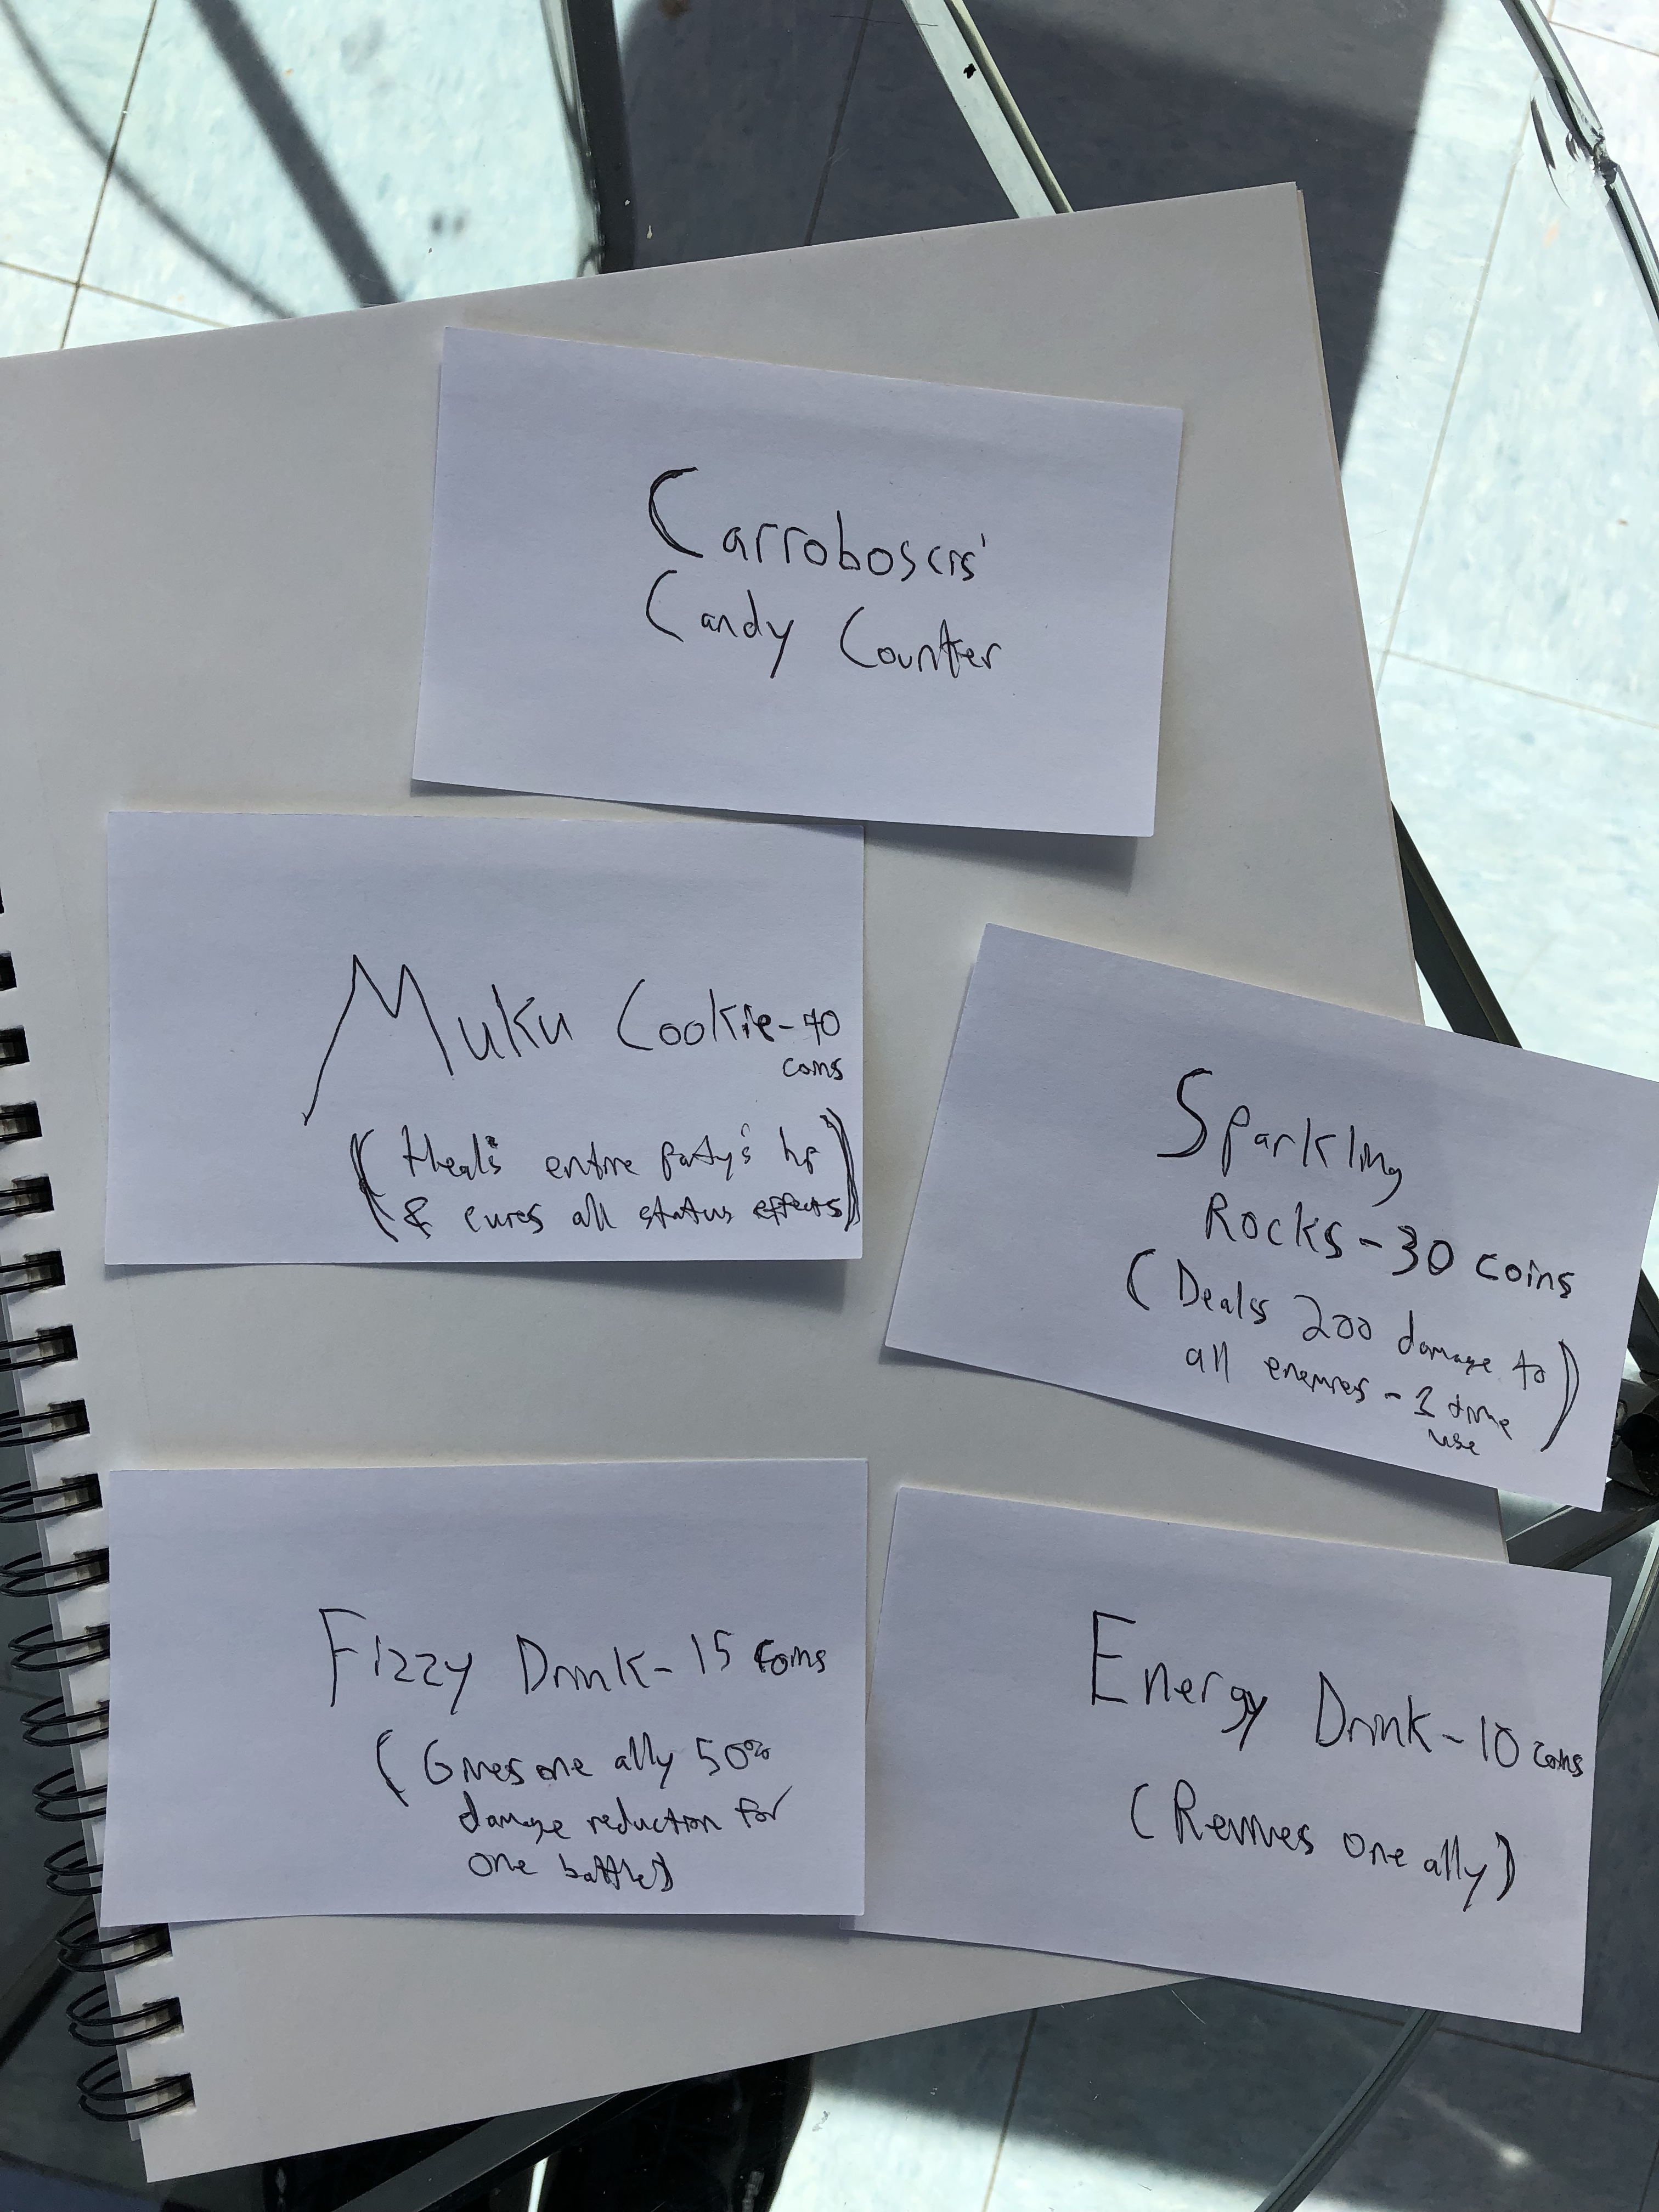 Carroboscis'
Candy Counter
Muku Cookie-40
coins
(Heals entire party's hp
& cures all status effects)
Sparkling
Rocks-30 coins
(Deals 200 damage to
all enemies-1 time
use)
Fizzy Drink-15 coins
(Gives one ally 50%
damage reduction for
one battle)
Energy Drink-10 coins
(Revives one ally)